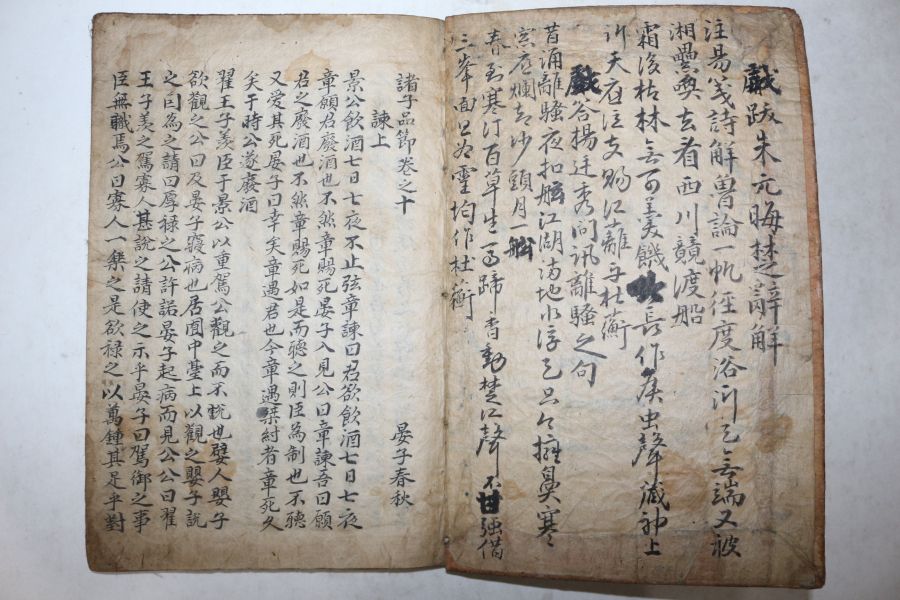 戲跋朱元晦楚辭解
注易箋詩解魯論一帆徑度浴沂天無端又被
湘纍喚去看西川競渡船
霜後枯林無可羙饑長作候虫聲藏神上
訴天應泣支賜江蘺子杜蘅
戲答揚廷秀問訊離騷之句
昔誦離騷夜扣舷江湖滿地水浮天只今擁鼻寒
窓底爛却沙頭月一舩
春到寒汀百草生馬蹄香動楚江聲不甘強借
三峯面且為靈均作杜蘅
諸子品節卷之十 晏子春秋
諫上
景公飲酒七日七夜不止弦章諫曰君欲飲酒七日七夜
章願君廢酒也不然章賜死晏子入見公曰章諫吾曰願
君之廢酒也不然章賜死如是而聽之則臣為制也不聽
又愛其死晏子曰幸矣章遇君也今章遇桀紂者章死久
矣于時公遂廢酒
翟王子羨臣于景公以重駕公觀之而不說也嬖人嬰子
欲觀之公曰及晏子寢病也居囿中臺上以觀之嬰子說
之曰為之請曰厚禄之公許諾晏子起病而見公公曰翟
王子羨之駕寡人甚說之請使之示乎晏子曰駕御之事
臣無職焉公曰寡人一樂之是欲禄之以萬鍾其足乎對